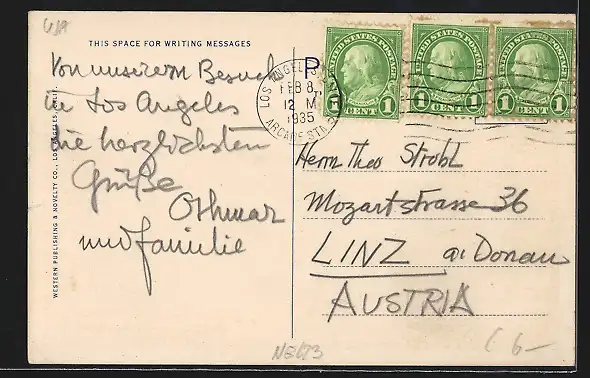 USA
THIS SPACE FOR WRITING MESSAGES
Von unserem Besuch
in Los Angeles
die herzlichsten
Grüße
Othmar
und Familie
WESTERN PUBLISHING & NOVELTY CO., LOS ANGELES, CALIF.
P
UNITED STATES POSTAGE
1 CENT 1
UNITED STATES POSTAGE
1 CENT 1
UNITED STATES POSTAGE
1 CENT 1
LOS ANGELES
FEB 8
12 M
1935
ARCADE STN.
Herrn Theo Strobl
Mozartstrasse 36
LINZ a. Donau
AUSTRIA
6-